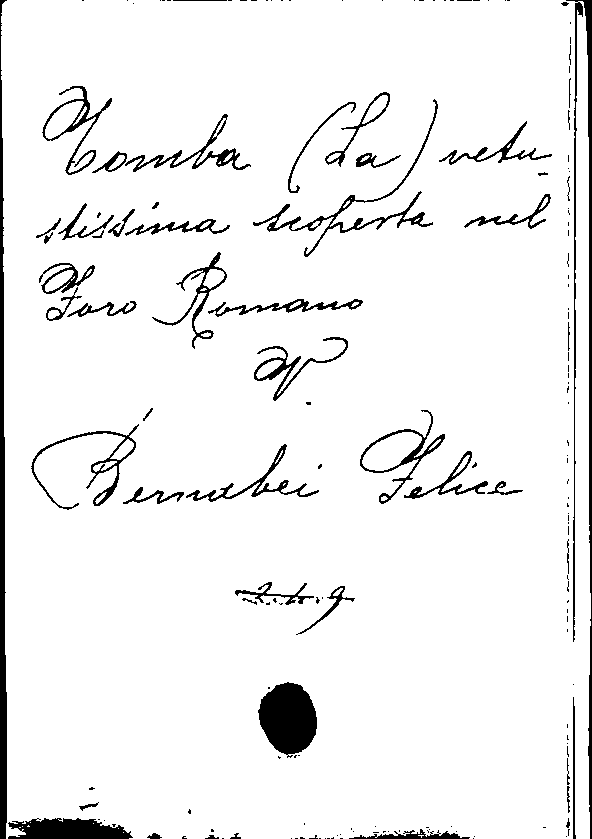 Tomba (La) vetu-
stissima scoperta nel
Foro Romano
V.
Bernabei Felice